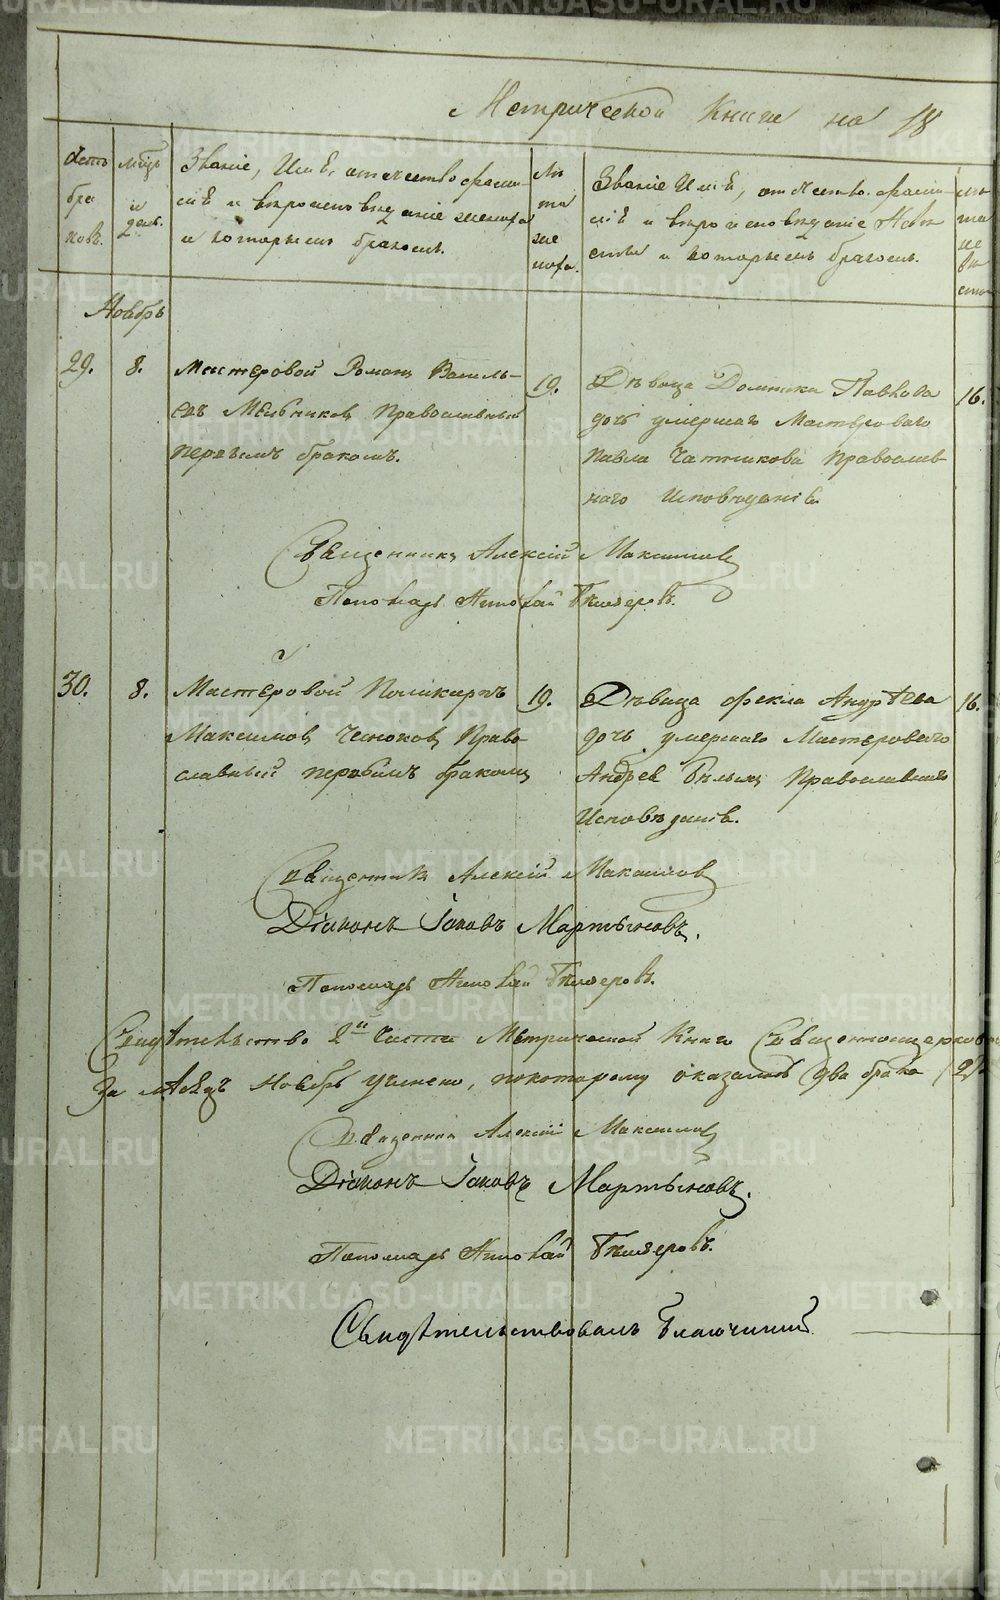 Метрической Книги на 18
Счетъ браковъ.
мѣцъ и день.
Званіе, Имѣ, отечество фами-
лиѣ и вѣроисповѣданіе жениха
и которымъ бракомъ.
Лѣта жениха.
Званіе Имѣ, отечество фами-
лиѣ и вѣроисповѣданіе Невѣ
сты и которымъ бракомъ.
лѣта невѣсты
Ноабрь
29.
8.
Мастеровой Романъ Василь-
евъ Мельниковъ Православный
первымъ бракомъ.
19.
Дѣвица Домника Павлова
дочь умершаго Мастероваго
Павла Православ-
наго Исповѣданіѣ
16.
Священникъ Алексій Максимовъ
Пономарь Николай
30.
8.
Мастеровой Поликарпъ
Максимовъ Чесноковъ Право
славный первымъ бракомъ
19.
Дѣвица Фекла Андрѣева
дочь умершаго Мастероваго
Андрея Бѣлыхъ Православнаго
Исповѣданіѣ.
16.
Священникъ Алексій Максимовъ
Діаконъ Іаковъ Мартыновъ.
Пономарь Николай
Свидѣтельство 2й Части Метрической Книги Священноцерков
За мѣсяцъ Ноабрь учинено, покоторому оказалось два брака (2)
Священникъ Алексій Максимовъ
Діаконъ Іаковъ Мартыновъ.
Пономарь Николай
Свидѣтельствовалъ Благочинный
METRIKI.GASO-URAL.RU